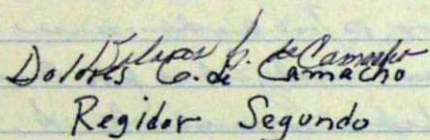 Dolores G. de Camacho
Dolores G. de Camacho
Regidor Segundo